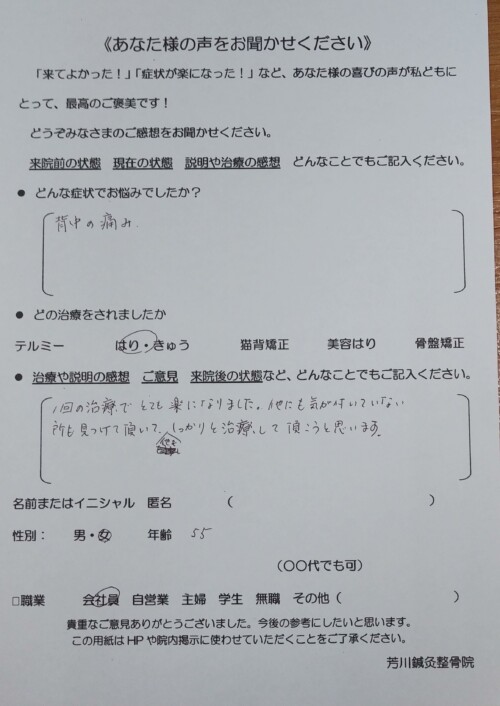 《あなた様の声をお聞かせください》
「来てよかった！」「症状が楽になった！」など、あなた様の喜びの声が私どもに
とって、最高のご褒美です！
どうぞみなさまのご感想をお聞かせください。
来院前の状態　現在の状態　説明や治療の感想　どんなことでもご記入ください。
● どんな症状でお悩みでしたか？
背中の痛み.
● どの治療をされましたか
テルミー　はり・きゅう　猫背矯正　美容はり　骨盤矯正
● 治療や説明の感想　ご意見　来院後の状態など、どんなことでもご記入ください。
1回の治療でとても楽になりました。他にも気が付いていない
所も見つけて頂いて、しっかりと治療して頂こうと思います。
名前またはイニシャル　匿名　（　　　）
性別：　男・女　年齢　55
（〇〇代でも可）
□職業　会社員　自営業　主婦　学生　無職　その他（　　　）
貴重なご意見ありがとうございました。今後の参考にしたいと思います。
この用紙はHPや院内掲示に使わせていただくことをご了承ください。
芳川鍼灸整骨院